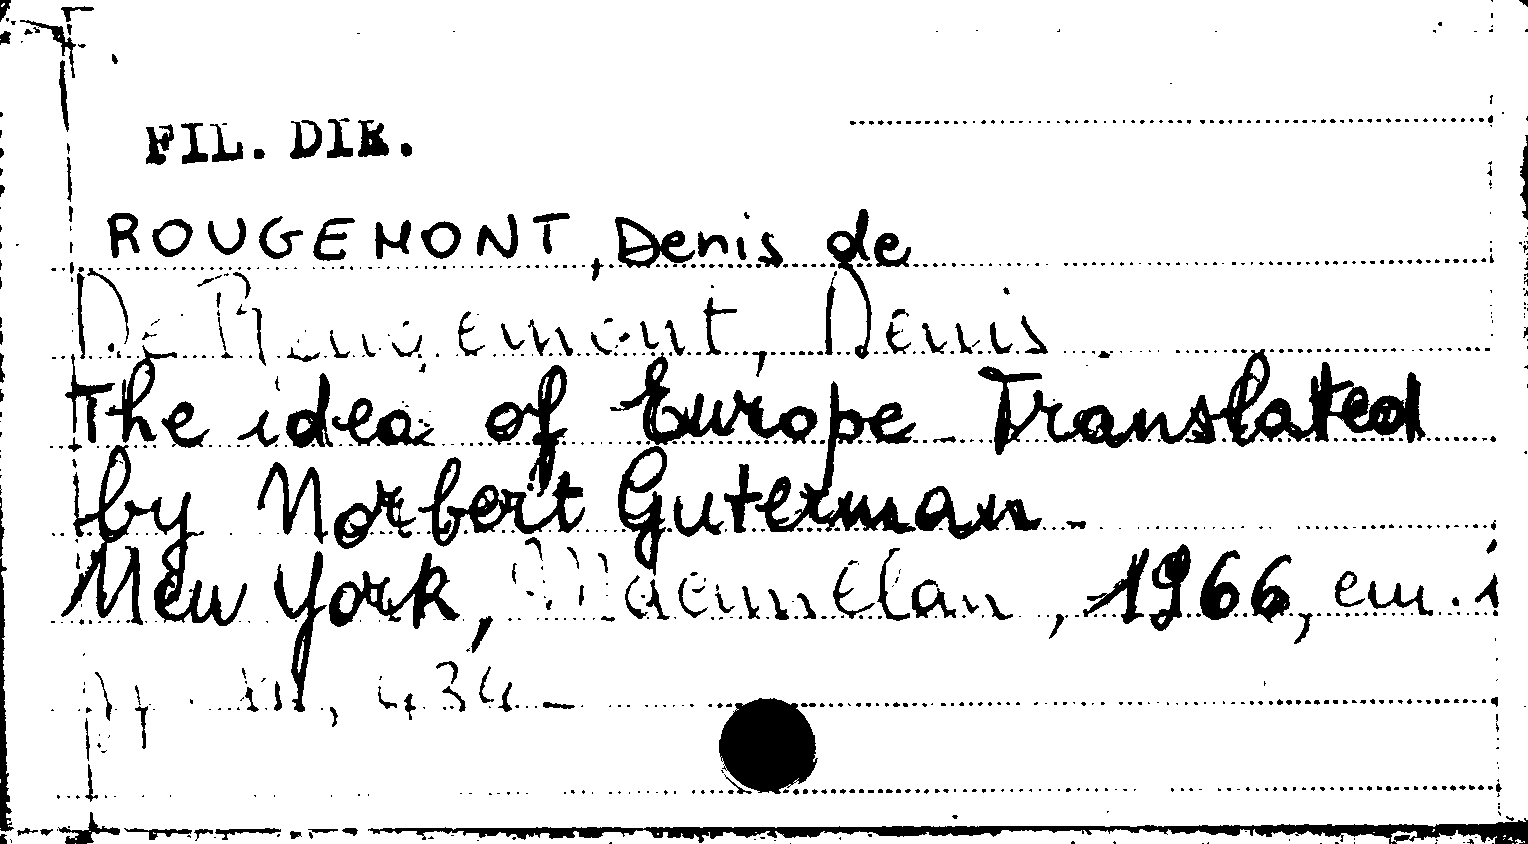 FIL. DIR.
ROUGEMONT, Denis de
De Rougemont, Denis
The idea of Europe. Translated
by Norbert Guterman.
New York, Macmillan, 1966, cm. i
pp. XII, 434